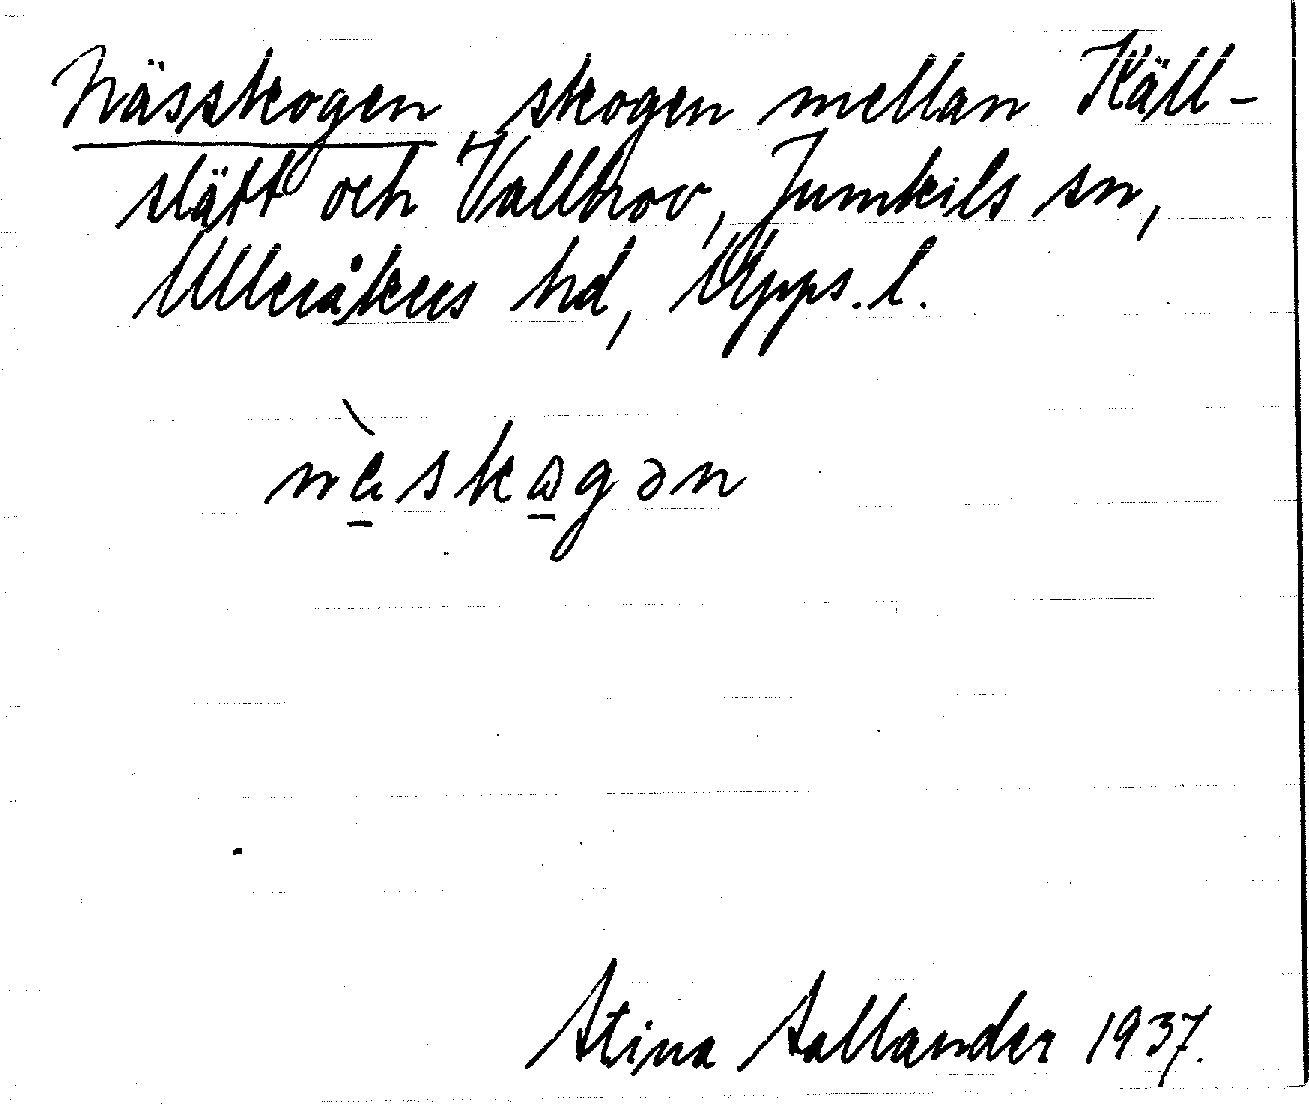 Nässkogen skogen mellan Käll-
slätt och Vallhov, Jumkils sn,
Ulleråkers hd, Upps. l.
nä̀skɷgən
Stina Sallander 1937.